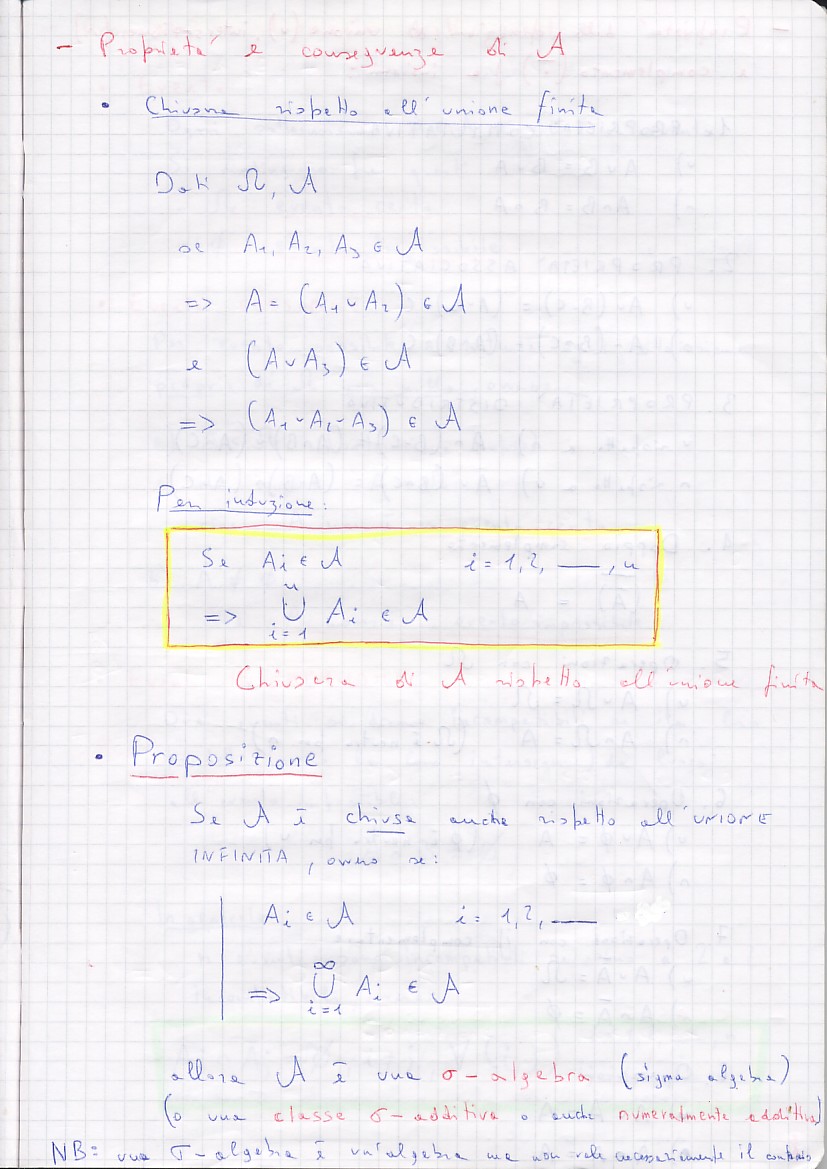 - Proprietà e conseguenze di A
• Chiusura rispetto all'unione finita
Dati Ω, A
se A₁, A₂, A₃ ∈ A
=> A = (A₁ ∪ A₂) ∈ A
e (A ∪ A₃) ∈ A
=> (A₁ ∪ A₂ ∪ A₃) ∈ A
Per induzione:
Se Ai ∈ A i = 1, 2, __, n
n
=> ∪ Ai ∈ A
i=1
Chiusura di A rispetto all'unione finita
• Proposizione
Se A è chiusa anche rispetto all'UNIONE
INFINITA, ovvero se:
Ai ∈ A i = 1, 2, __
∞
=> ∪ Ai ∈ A
i=1
allora A è una σ-algebra (sigma algebra)
(o una classe σ-additiva o anche numeralmente additiva)
NB: una σ-algebra è un'algebra ma non vale necessariamente il contrario